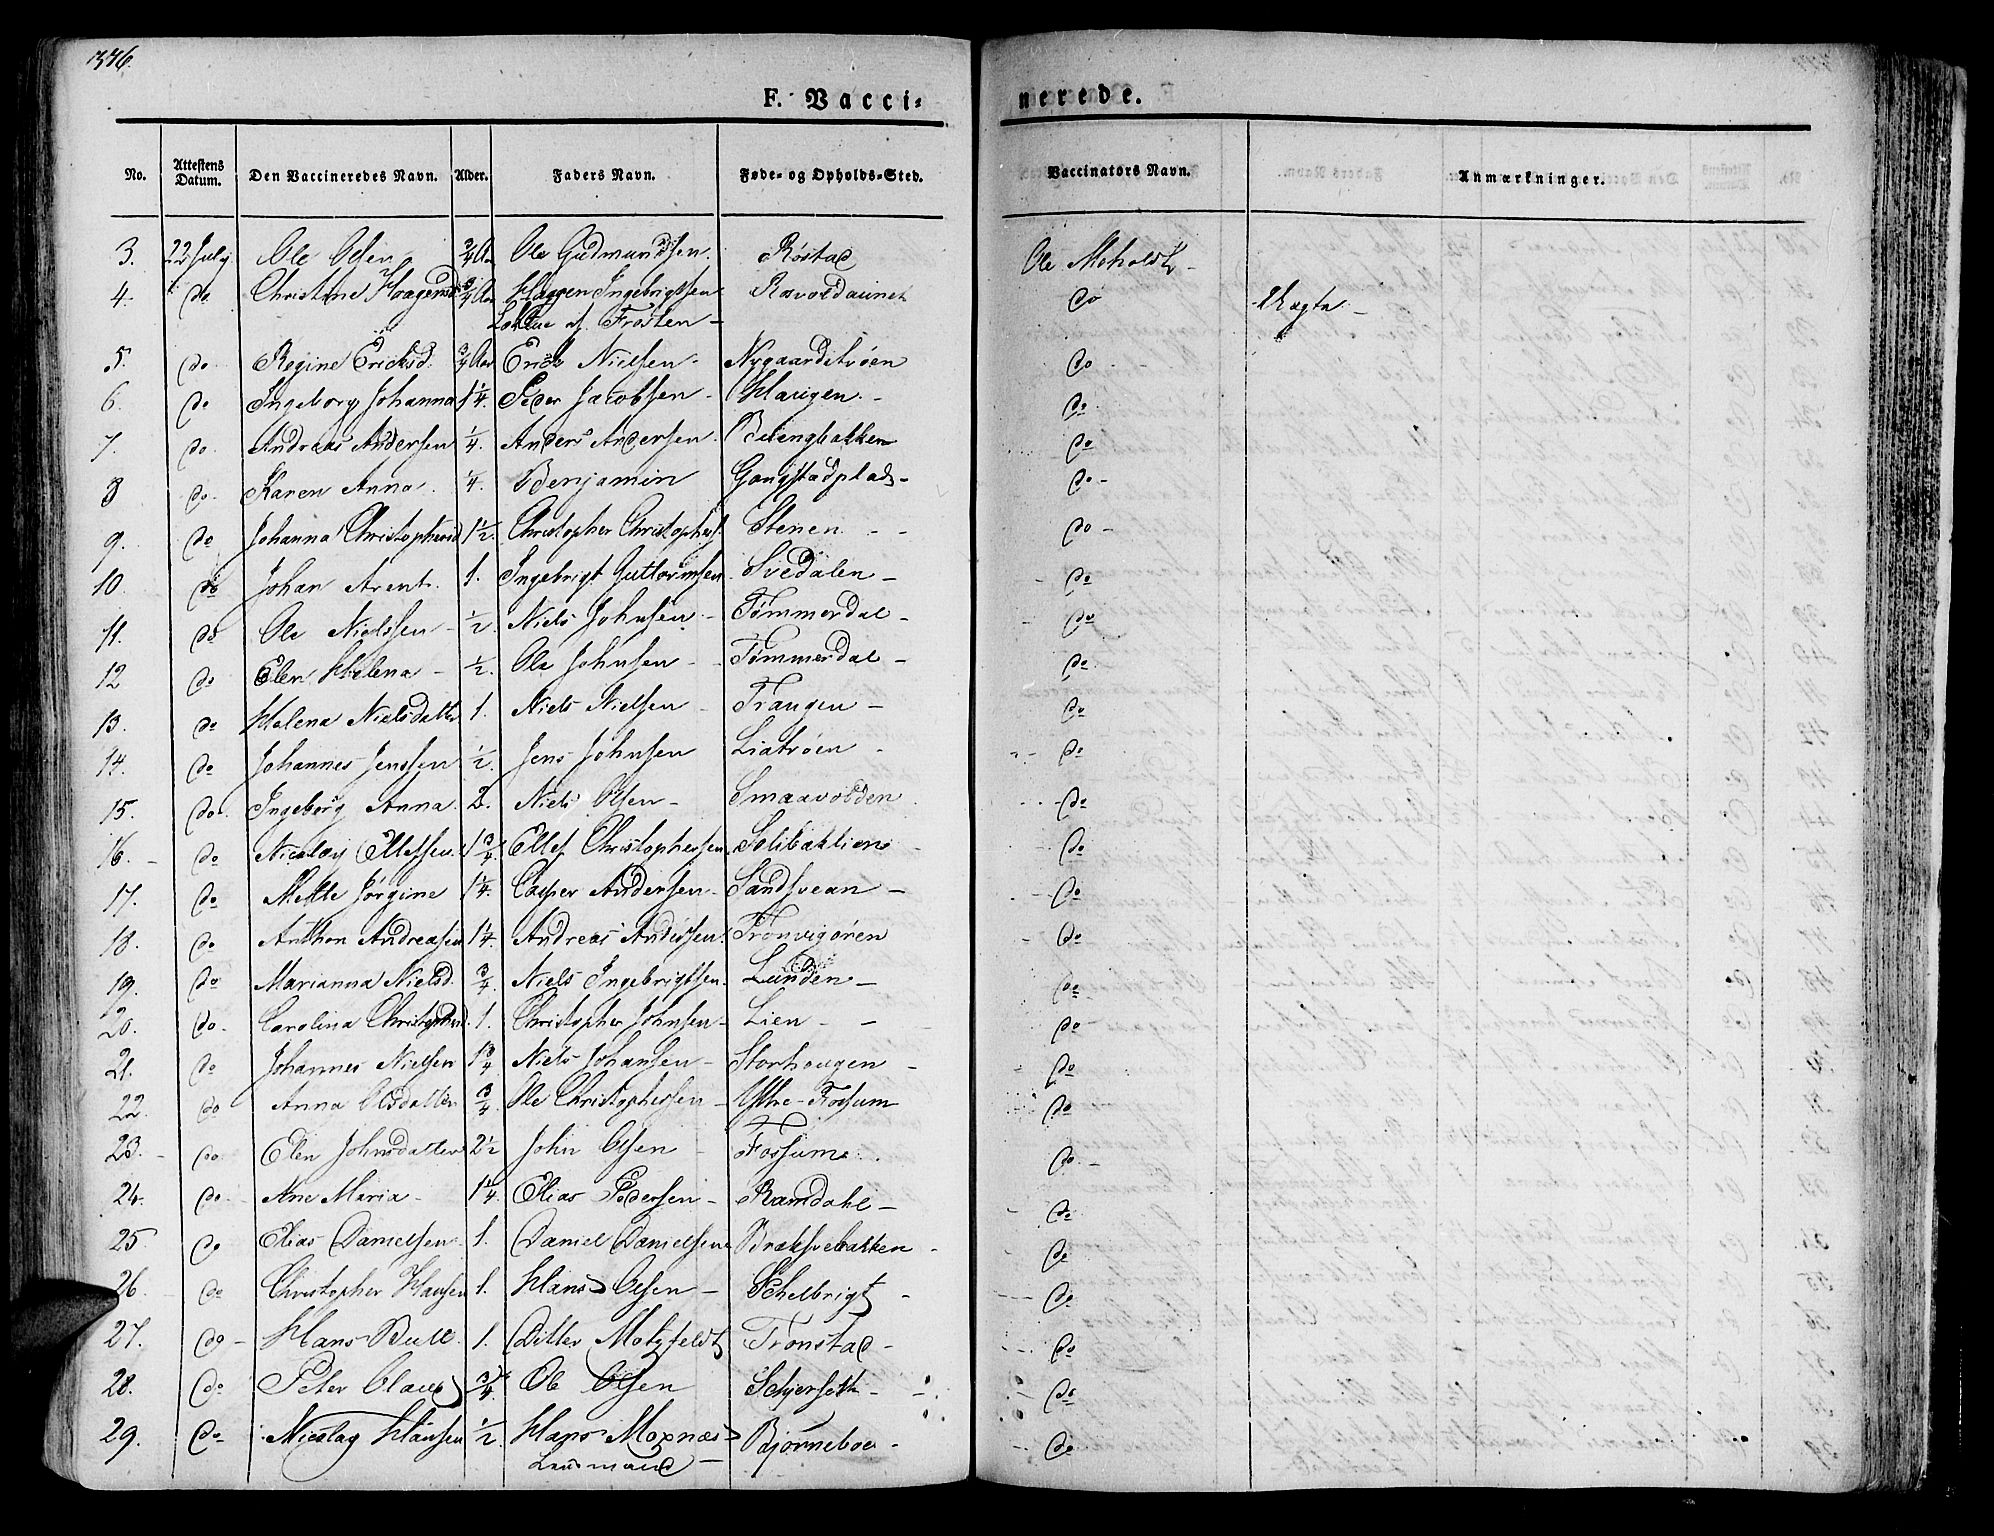 346.
F. Vacci= nerede.
No. Attestens Datum. Den Vaccineredes Navn. Alder. Faders Navn. Føde- og Opholds-Sted. Vaccinators Navn. Anmærkninger.
3. 22 July Ole Olsen 3/4 Aar Ole Gudmundsen. Røstad Ole
4. do Christine Haagensd 3/4 Aar Haagen Ingebrigtsen Ravoldaunet do Uægta.
af Frosten
5. do Regine Ericksd. 3/4 Aar Erich Nielsen Nygaardstrøen do
6. do Ingeborg Johanna 1 1/4. Peder Jacobsen Haugen do
7. do Andreas Andersen 1/4. Anders Andersen do
8 do Karen Anna 1/4. Benjamin Gangstadplads do
9. do Johanna Christophersd 1 1/2. Christopher Christophers. Stenen do
10. do Johan Arent. 1. Ingebrigt Guttormsen Svedalen do
11. do Ole Nielssen 1/2. Niels Johnsen Tømmerdal do
12 do Elen Helena 1/2. Ole Johnsen Tømmerdal do
13. do Helena Nielsdatter 1. Niels Nielsen Trangen do
14. do Johannes Jenssen 1/2. Jens Johnsen Liatrøen do
15. do Ingeborg Anna. 2. Niels Olsen Smaavolden do
16. do Nicolay Ellefsen. 1 3/4 Ellef Christophersen do
17. do Mette Jørgine 1 1/4. Casper Andersen Sandsvean do
18. do Anthon Andreasen 1 1/4. Andreas Anderssen. Trønvigøren do
19. do Marianna Nielsd. 3/4. Niels Ingebrigtsen. Lunden do
20. do Carolina Christophersd. 1. Christopher Johnsen Lien do
21. do Johannes Nielsen 1 3/4 Niels Johansen Storhaugen do
22. do Anna Olsdatter 3/4. Ole Christophersen Ystre-Fossum do
23. do Elen Johnsdatter 2 1/2 John Olsen Fossum do
24. do Ane Maria 1 1/4. Elias Pedersen Ramdahl do
25 do Elias Danielsen. 1. Daniel Danielsen Bræksvebakken do
26. do Christopher Hansen 1. Hans Olsen Schelbrigt do
27. do Hans Bull. 1. Ditlev Motzfeldt Tronstad do
28. do Peter Claus 3/4. Ole Olsen Schjerseth do
29. do Nicolay Hansen 1/2. Hans Moxnæs Bjørneboe do
Lensmand